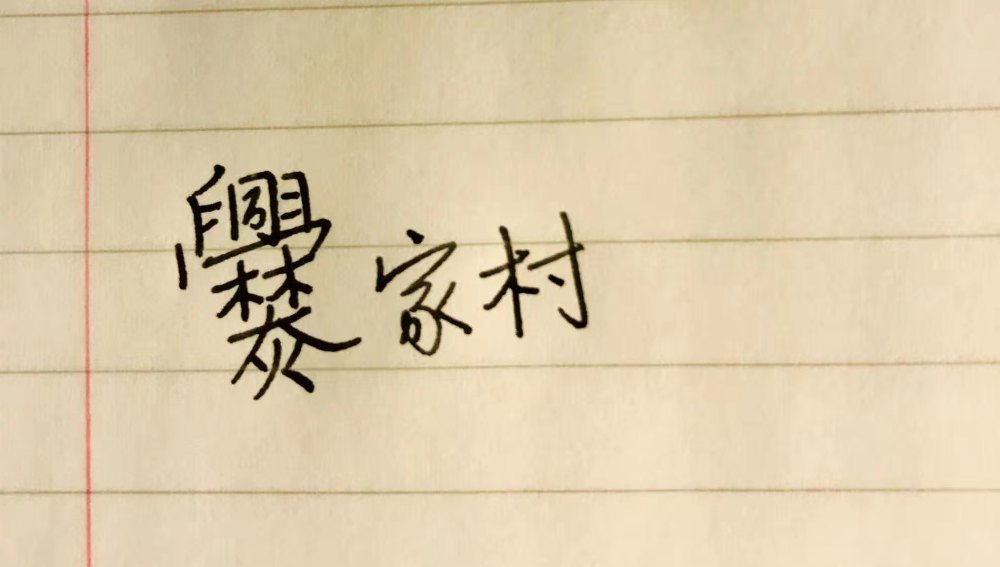 爨家村